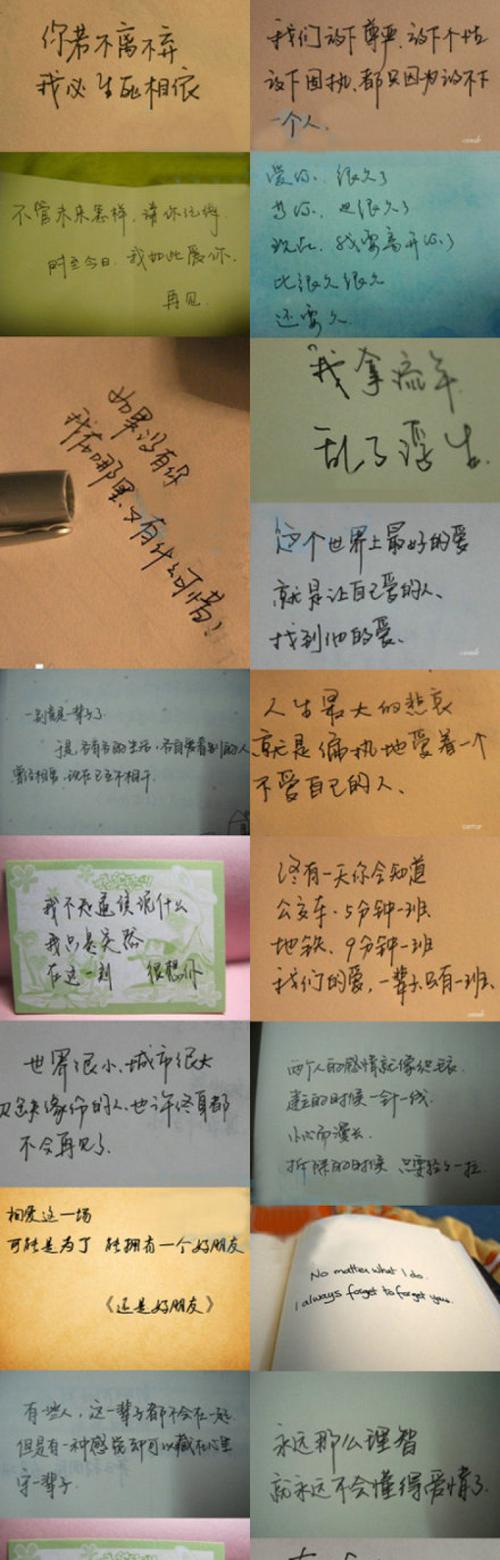 你若不离不弃
我必生死相依
我们放下尊严,放下个性
放下固执,都只因为放不下
一个人.
不管未来怎样,请你记得.
时至今日.我如此爱你.
再见.
爱你.很久了
等你.也很久了
现在.我要离开你了
比很久很久
还要久
如果没有你
我在哪里又有什么可惜!
我拿流年
乱了浮生.
这个世界上最好的爱
就是让自己爱的人、
找到他的爱、
一别竟是一辈子了.
于是,各有各的生活,各自爱着别的人
曾经相爱,现在已互不相干.
人生最大的悲哀
就是偏执地爱着一个
不爱自己的人、
我不知道该说什么
我只是突然
在这一刻 很想你
终有一天你会知道
公交车.5分钟一班
地铁、9分钟一班
我们的爱,一辈子只有一班、
世界很小、城市很大
又缺缘份的人、也许终身都
不会再见了、
两个人的感情就像织毛衣.
建立的时候一针一线.
小心而漫长.
拆除的时候 只要轻轻一拉.
相爱这一场
可能是为了 能拥有一个好朋友
《还是好朋友》
No matter what I do.
I always forget to forget you.
有些人,这一辈子都不会在一起.
但是有一种感觉却可以藏在心里
守一辈子.
永远那么理智
就永远不会懂得爱情了.